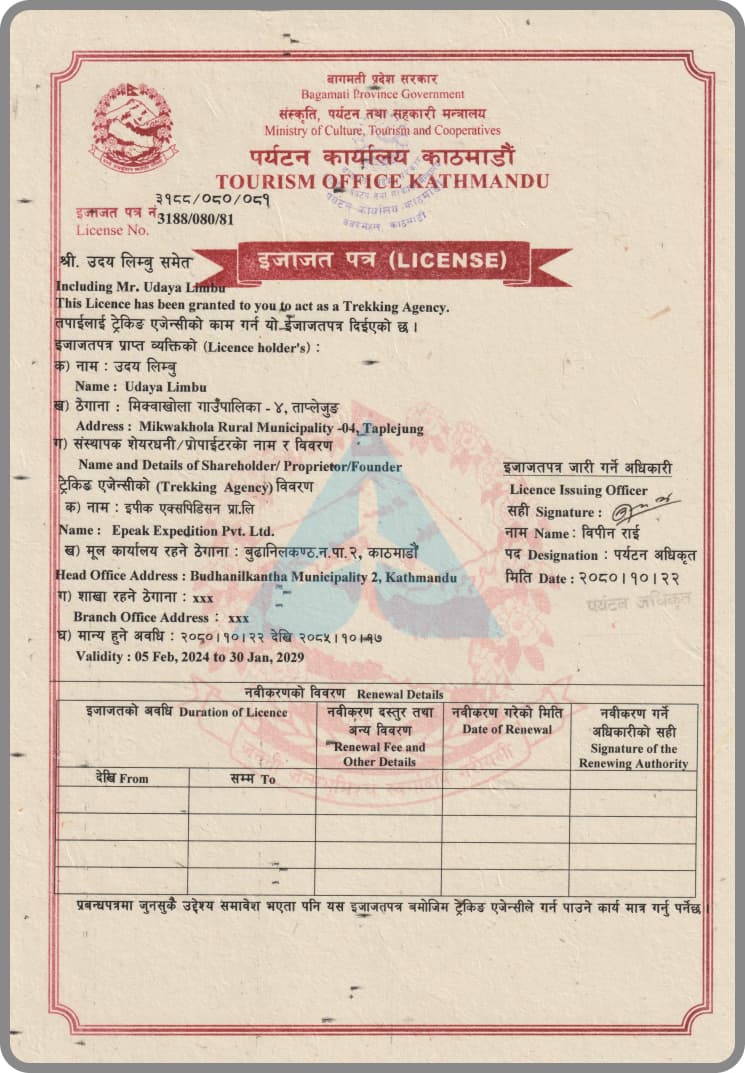 बागमती प्रदेश सरकार
Bagamati Province Government
संस्कृति, पर्यटन तथा सहकारी मन्त्रालय
Ministry of Culture, Tourism and Cooperatives
पर्यटन कार्यालय काठमाडौं
TOURISM OFFICE KATHMANDU
पर्यटन कार्यालय, काठमाडौं
बबरमहल, काठमाडौं
३१८८/०८०/०८१
इजाजत पत्र नं 3188/080/81
License No.
श्री. उदय लिम्बु समेत
इजाजत पत्र (LICENSE)
Including Mr. Udaya Limbu
This Licence has been granted to you to act as a Trekking Agency.
तपाईलाई ट्रेकिङ एजेन्सीको काम गर्न यो ईजाजतपत्र दिईएको छ ।
इजाजतपत्र प्राप्त व्यक्तिको (Licence holder's) :
क) नाम : उदय लिम्बु
Name : Udaya Limbu
ख) ठेगाना : मिक्वाखोला गाउँपालिका - ४, ताप्लेजुङ
Address : Mikwakhola Rural Municipality -04, Taplejung
ग) संस्थापक शेयरधनी/प्रोपाईटरको नाम र विवरण
Name and Details of Shareholder/ Proprietor/Founder
ट्रेकिङ एजेन्सीको (Trekking Agency) विवरण
क) नाम : इपीक एक्सपिडिसन प्रा.लि
Name : Epeak Expedition Pvt. Ltd.
ख) मूल कार्यालय रहने ठेगाना : बुढानिलकण्ठ.न.पा.२, काठमाडौं
Head Office Address : Budhanilkantha Municipality 2, Kathmandu
ग) शाखा रहने ठेगाना : xxx
Branch Office Address : xxx
घ) मान्य हुने अवधि : २०८०।१०।२२ देखि २०८५।१०।१७
Validity : 05 Feb, 2024 to 30 Jan, 2029
इजाजतपत्र जारी गर्ने अधिकारी
Licence Issuing Officer
सही Signature :
नाम Name : विपीन राई
पद Designation : पर्यटन अधिकृत
मिति Date : २०८०।१०।२२
पर्यटन अधिकृत
नवीकरणको विवरण Renewal Details
इजाजतको अवधि Duration of Licence
नवीकरण दस्तुर तथा
अन्य विवरण
Renewal Fee and
Other Details
नवीकरण गरेको मिति
Date of Renewal
नवीकरण गर्ने
अधिकारीको सही
Signature of the
Renewing Authority
देखि From
सम्म To
जननी जन्मभूमिश्च स्वर्गादपि गरीयसी
प्रबन्धपत्रमा जुनसुकै उद्देश्य समावेश भएता पनि यस इजाजतपत्र बमोजिम ट्रेकिङ एजेन्सीले गर्न पाउने कार्य मात्र गर्नु पर्नेछ ।